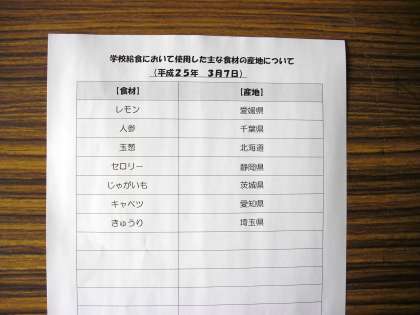 学校給食において使用した主な食材の産地について
（平成２５年　３月７日）
【食材】　【産地】
レモン　愛媛県
人参　千葉県
玉葱　北海道
セロリー　静岡県
じゃがいも　茨城県
キャベツ　愛知県
きゅうり　埼玉県